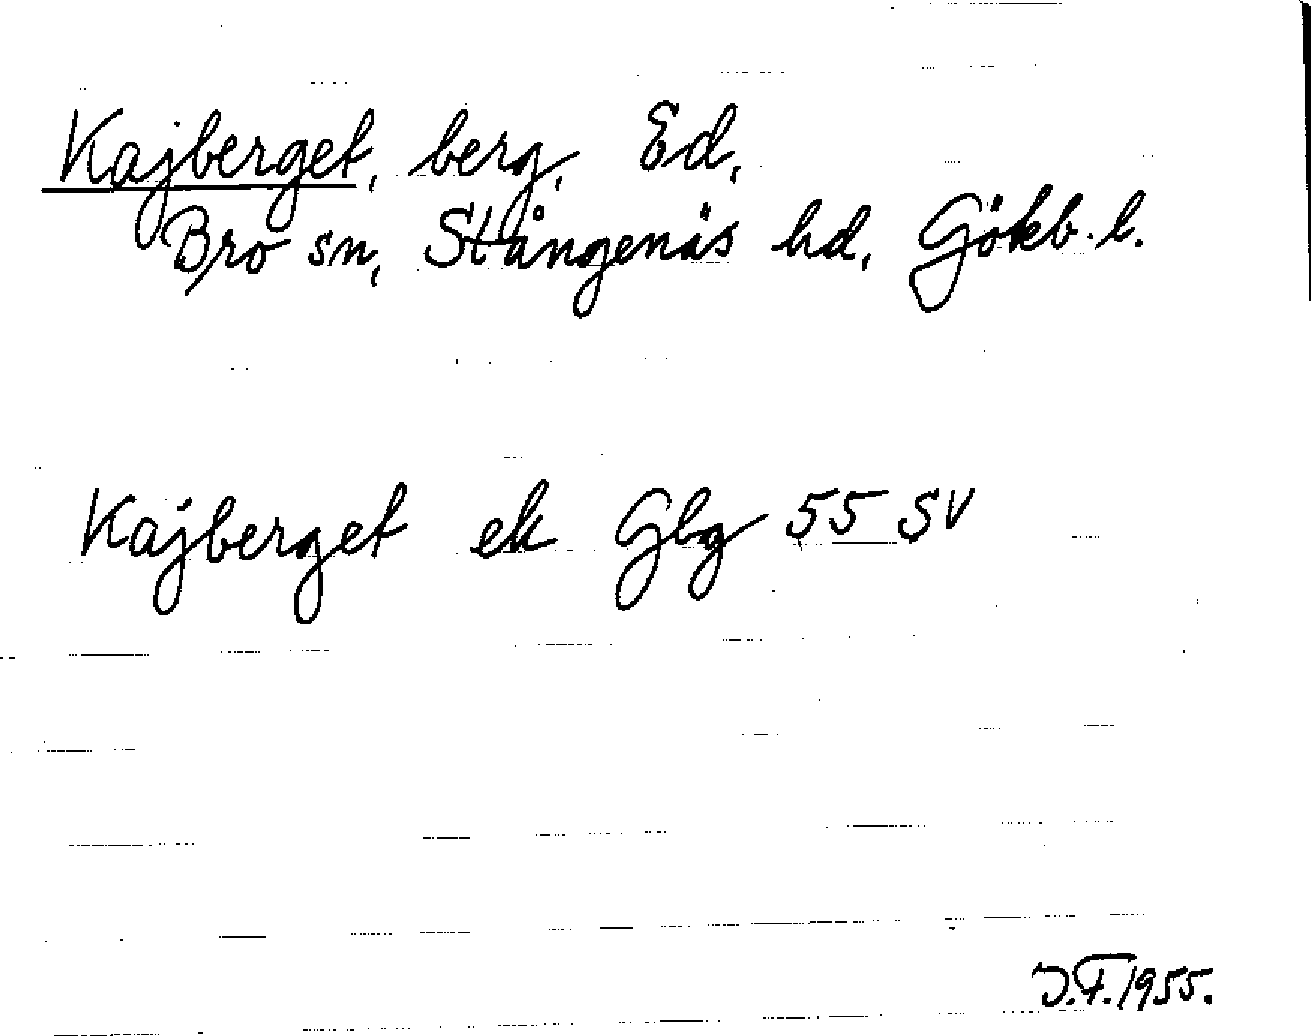 Kajberget, berg, Ed,
Bro sn, Stångenäs hd, Gökb. l.
Kajberget ek Gbg 55 SV
J.F. 1955.